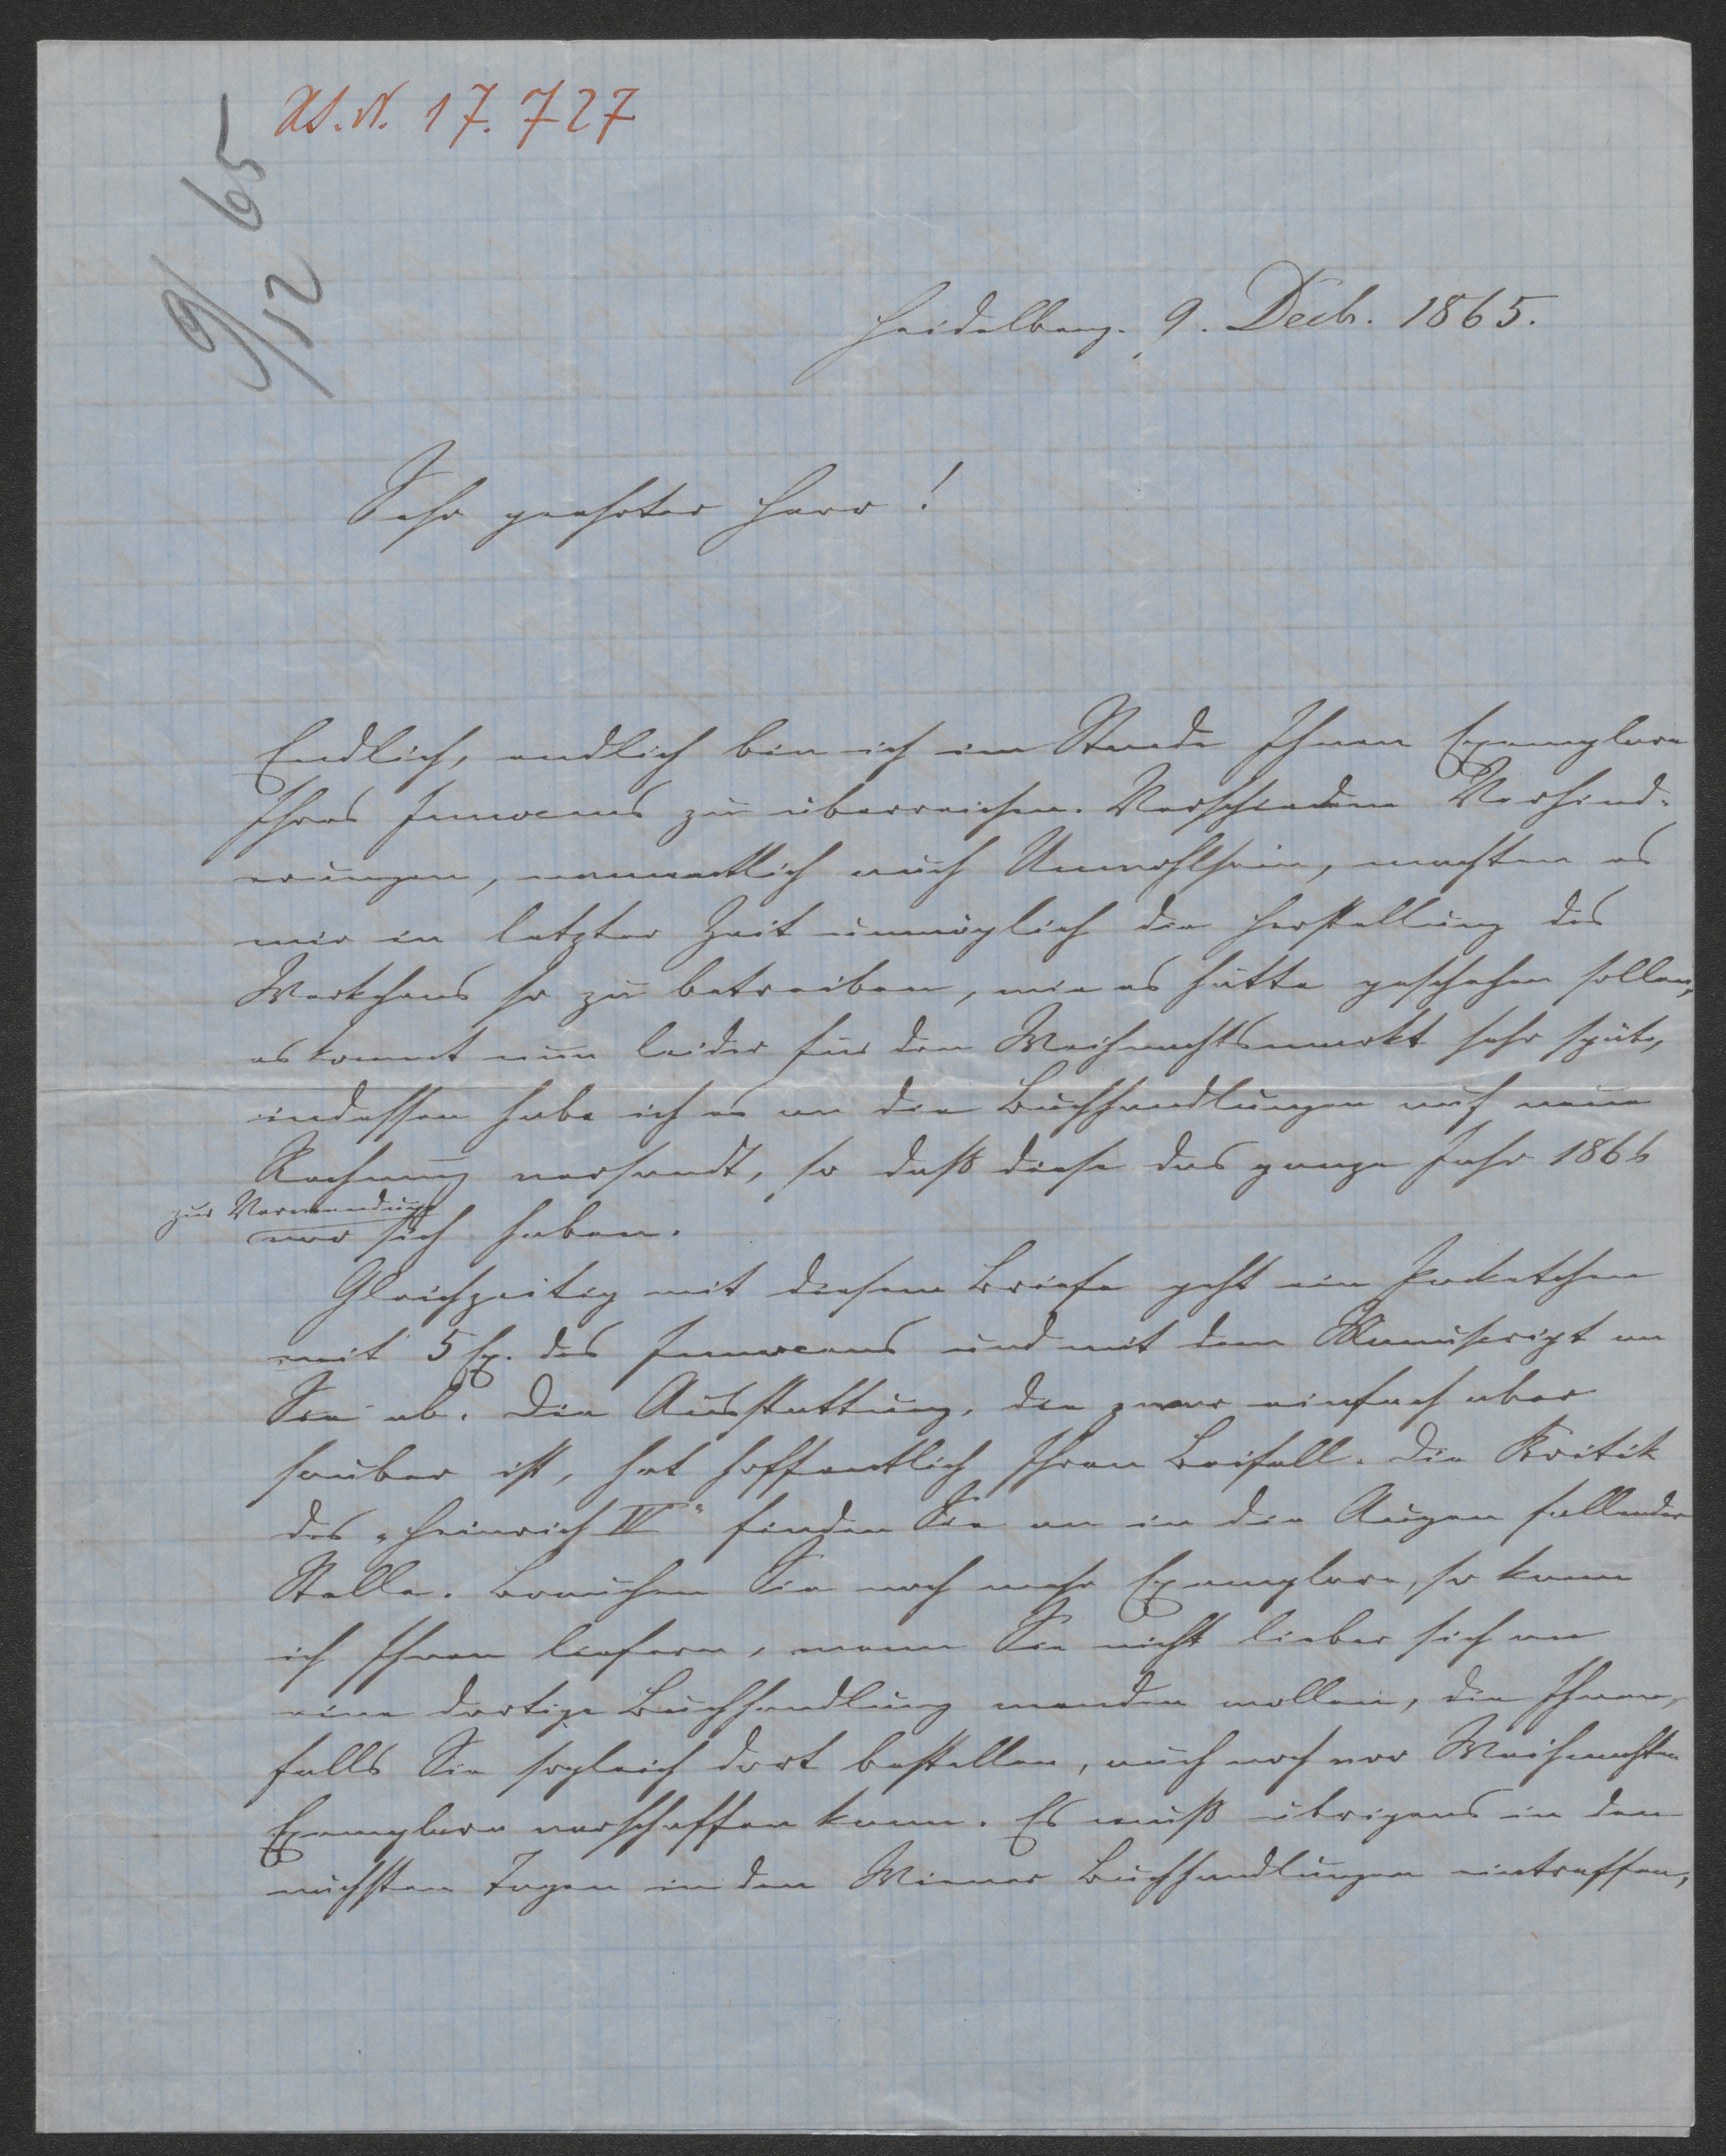 H.I.N. 17.727
9/12 65
Heidelberg. 9. Decb. 1865.
Sehr geehrter Herr!
Endlich, endlich bin ich im Stande Ihnen Exemplare
Ihres Innocens zu überreichen. Verschiedene Verhind-
erungen, namentlich auch Unwohlsein, machten es
mir in letzter Zeit unmöglich die Herstellung des
Werkchens so zu betreiben, wie es hätte geschehen sollen,
es kommt nun leider für den Weihnachtsmarkt sehr spät,
indessen habe ich es an die Buchhandlungen auf neue
Rechnung versandt, so daß diese das ganze Jahr 1866
zur Verwendung
vor sich haben.
Gleichzeitig mit diesem Briefe geht ein Packetchen
mit 5 Ex. des Innocens und mit dem Manuscript an
Sie ab. Die Ausstattung, die zwar einfach aber
sauber ist, hat hoffentlich Ihren Beifall. Die Kritik
des „Heinrich IV“ finden Sie an in die Augen fallender
Stelle. Brauchen Sie noch mehr Exemplare, so kann
ich Ihnen liefern, wenn Sie nicht lieber sich an
eine dortige Buchhandlung wenden wollen, die Ihnen,
falls Sie sogleich dort bestellen, auch noch vor Weihnachten
Exemplare verschaffen kann. Es muß übrigens in den
nächsten Tagen in den Wiener Buchhandlungen eintreffen,